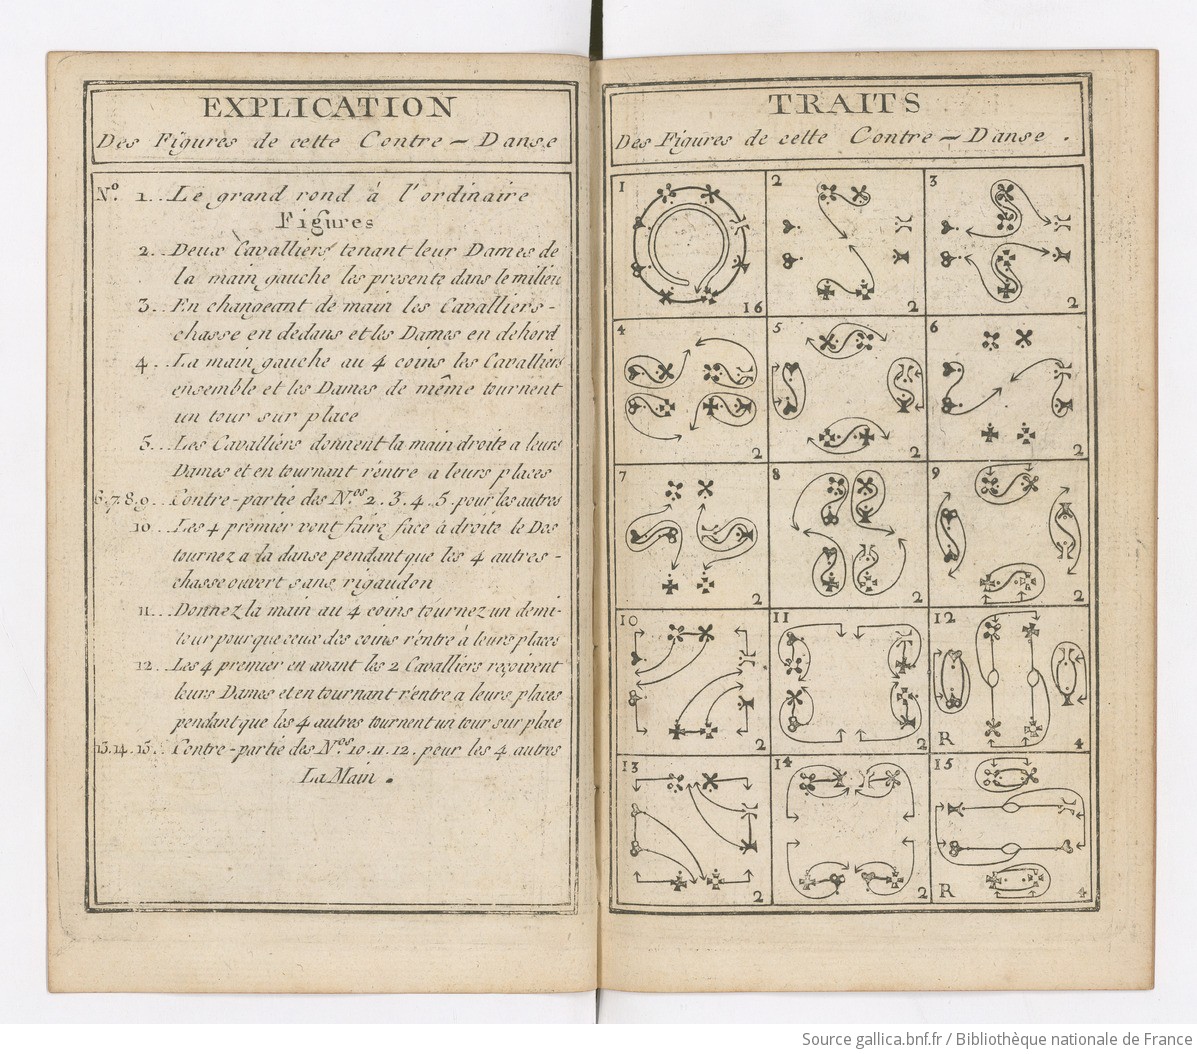 EXPLICATION
Des Figures de cette Contre - Danse
N.º 1.. Le grand rond à l'ordinaire
Figures
2.. Deux Cavalliers tenant leur Dames de
la main gauche les presente dans le milieu
3.. En changeant de main les Cavalliers -
chasse en dedans et les Dames en dehord
4.. La main gauche au 4 coins les Cavalliers
ensemble et les Dames de même tournent
un tour sur place
5... Les Cavalliers donnent la main droite a leurs
Dames et en tournant r'entre a leurs places
6.7.8.9.. Contre-partie des N.ºs 2.3.4.5. pour les autres
10.. Les 4 premier vont faire face à droite le Dos
tournez a la danse pendant que les 4 autres -
chasse ouvert sans rigaudon
11... Donnez la main au 4 coins tournez un demi-
tour pour que ceux des coins r'entre à leurs places
12.. Les 4 premier en avant les 2 Cavalliers reçoivent
leurs Dames et en tournant r'entre a leurs places
pendant que les 4 autres tournent un tour sur place
13.14.15.. Contre-partie des N.ºs 10.11.12. pour les 4 autres
La Main.
TRAITS
Des Figures de cette Contre - Danse.
1 16
2 2
3 2
4 2
5 2
6 2
7 2
8 2
9 2
10 2
11 2
12 R 4
13 2
14 2
15 R 4
Source gallica.bnf.fr / Bibliothèque nationale de France